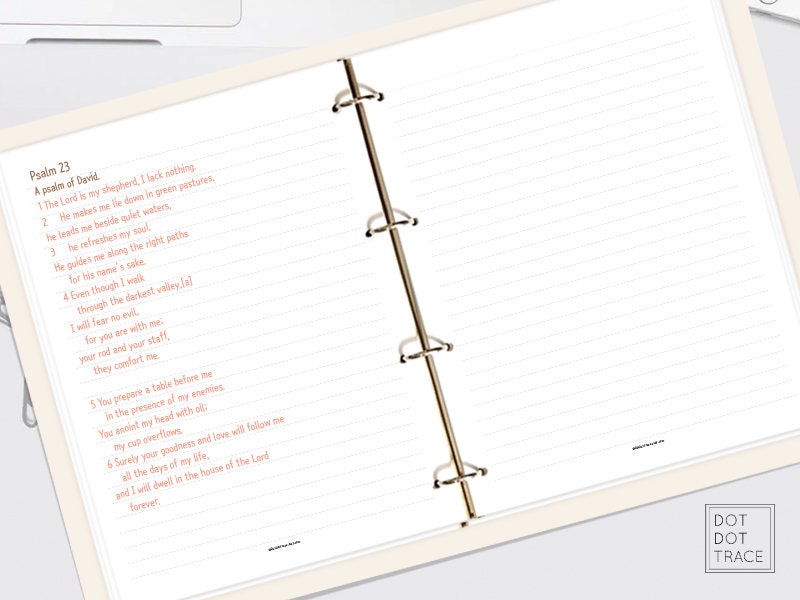 Psalm 23
A psalm of David.
1 The Lord is my shepherd, I lack nothing.
2 He makes me lie down in green pastures,
he leads me beside quiet waters,
3 he refreshes my soul.
He guides me along the right paths
for his name's sake.
4 Even though I walk
through the darkest valley,[a]
I will fear no evil,
for you are with me;
your rod and your staff,
they comfort me.
5 You prepare a table before me
in the presence of my enemies.
You anoint my head with oil;
my cup overflows.
6 Surely your goodness and love will follow me
all the days of my life,
and I will dwell in the house of the Lord
forever.
DOT
DOT
TRACE